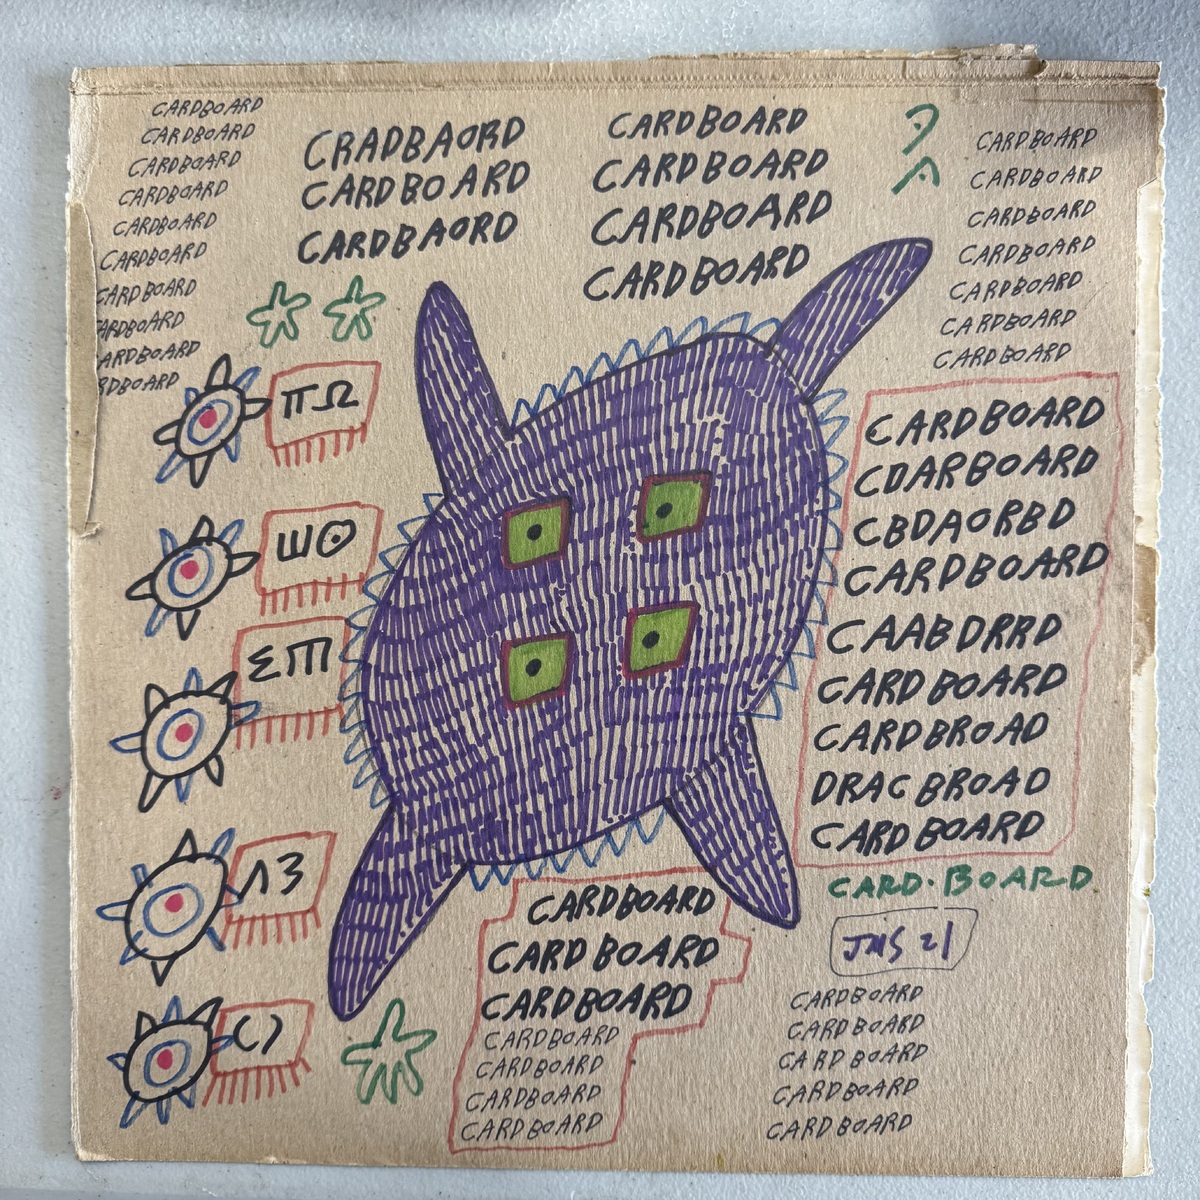 CARDBOARD
CARDBOARD
CARDBOARD
CARDBOARD
CARDBOARD
CARDBOARD
CARDBOARD
ARDBOARD
ARDBOARD
RDBOARD
CRADBAORD
CARDBOARD
CARDBAORD
CARDBOARD
CARDBOARD
CARDBOARD
CARDBOARD
CARDBOARD
CARDBOARD
CARDBOARD
CARDBOARD
CARDBOARD
CARDBOARD
CARDBOARD
ΠΩ
ШΘ
ΣΠ
Λ3
()
CARDBOARD
CDARBOARD
CBDAORBD
CARDBOARD
CAABDRRD
CARDBOARD
CARDBROAD
DRACBROAD
CARDBOARD
CARD·BOARD
JMS 21
CARDBOARD
CARDBOARD
CARDBOARD
CARDBOARD
CARDBOARD
CARDBOARD
CARDBOARD
CARDBOARD
CARDBOARD
CARDBOARD
CARDBOARD
CARDBOARD